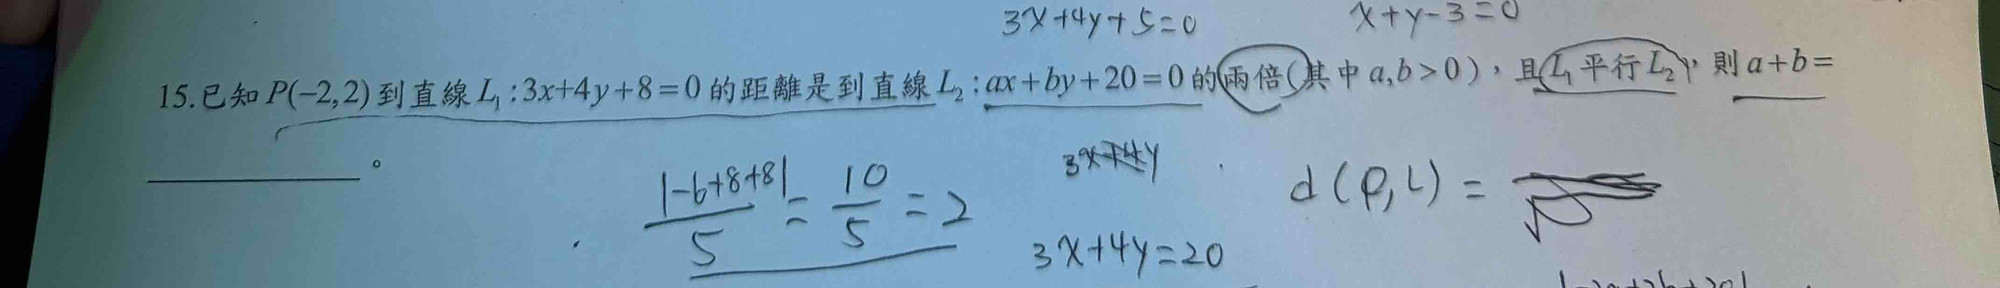 3x+4y+5=0 x+y-3=0
15.已知P(-2,2)到直線L₁:3x+4y+8=0的距離是到直線L₂:ax+by+20=0的兩倍(其中a,b>0),且L₁平行L₂,則a+b=
________。
3x+4y
|-6+8+8|/5 = 10/5 = 2
d(P,L)=
3x+4y=20